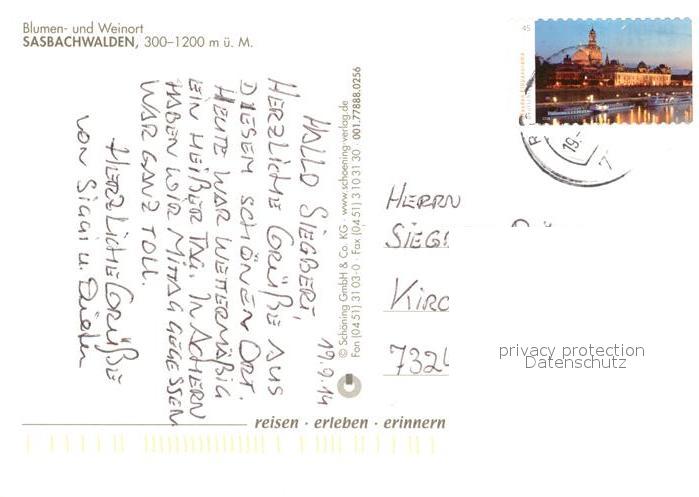 Blumen- und Weinort
SASBACHWALDEN, 300–1200 m ü. M.
45
19.9.14
HALLO SIEGBERT,
HERZLICHE GRÜßE AUS
DIESEM SCHÖNEN ORT.
HEUTE WAR WETTERMÄßIG
EIN HEIßER TAG. IN ACHERN
HABEN WIR MITTAG GEGESSEN
WAR GANZ TOLL.
HERZLICHE GRÜßE
VON SIGGI u. Dieter
© Schöning GmbH & Co. KG · www.schoening-verlag.de
Fon (0451) 3103-0 · Fax (0451) 3103130 · 001.77888.0256
HERRN
SIEG
KIRC
732
19.-
7
privacy protection
Datenschutz
reisen · erleben · erinnern